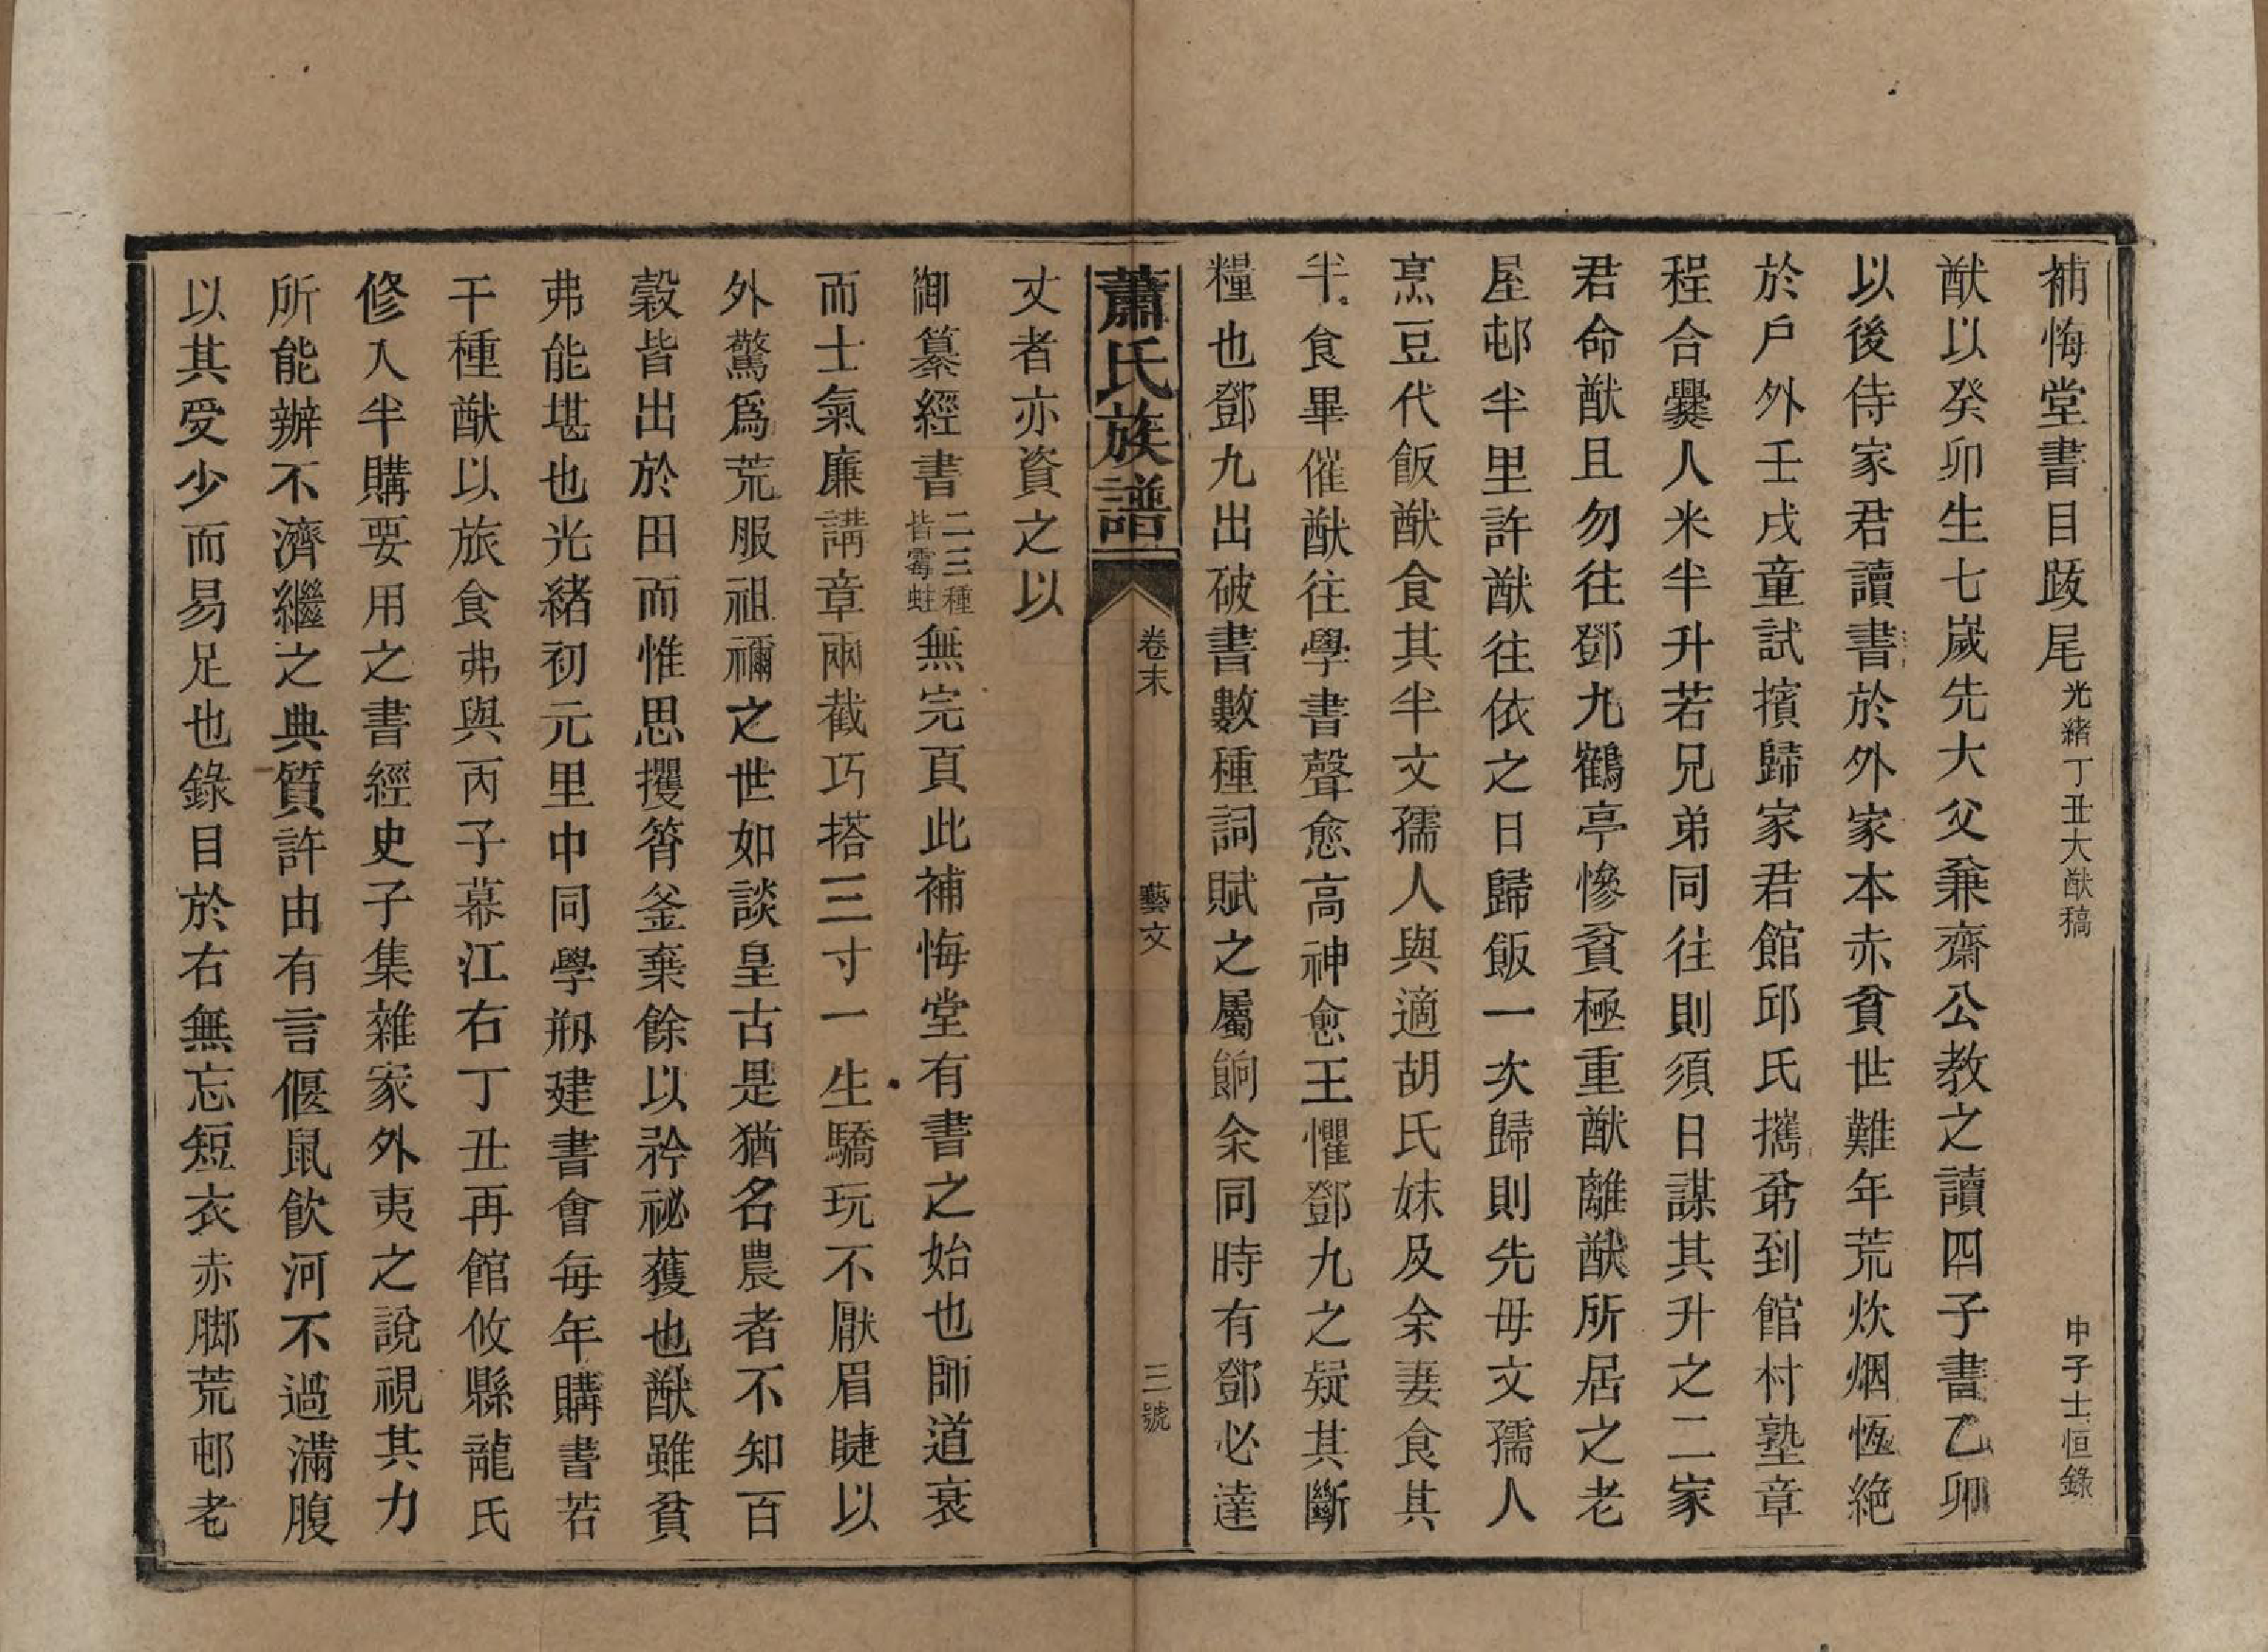 補悔堂書目跋尾 光緒丁丑大猷稿 申子士恒錄
猷以癸卯生七歲先大父兼齋公教之讀四子書乙卯
以後侍家君讀書於外家本赤貧世難年荒炊烟恆絶
於戶外壬戌童試擯歸家君館邱氏攜弟到館村塾章
程合爨人米半升若兄弟同往則須日謀其升之二家
君命猷且勿往鄧九鶴亭慘貧極重猷離猷所居之老
屋邨半里許猷往依之日歸飯一次歸則先毋文孺人
烹豆代飯猷食其半文孺人與適胡氏妹及余妻食其
半食畢催猷往學書聲愈高神愈王懼鄧九之疑其斷
糧也鄧九出破書數種詞賦之屬餉余同時有鄧必達
蕭氏族譜 卷末 藝文 三號
文者亦資之以
御纂經書二三種皆霉蛀無完頁此補悔堂有書之始也師道衰
而士氣廉講章兩截巧搭三寸一生驕玩不厭眉睫以
外驚爲荒服祖禰之世如談皇古是猶名農者不知百
穀皆出於田而惟思攫筲釜棄餘以矜祕獲也猷雖貧
弗能堪也光緒初元里中同學剏建書會每年購書若
干種猷以旅食弗與丙子幕江右丁丑再館攸縣龍氏
修入半購要用之書經史子集雜家外夷之說視其力
所能辦不濟繼之典質許由有言偃鼠飲河不過滿腹
以其受少而易足也錄目於右無忘短衣赤脚荒邨老